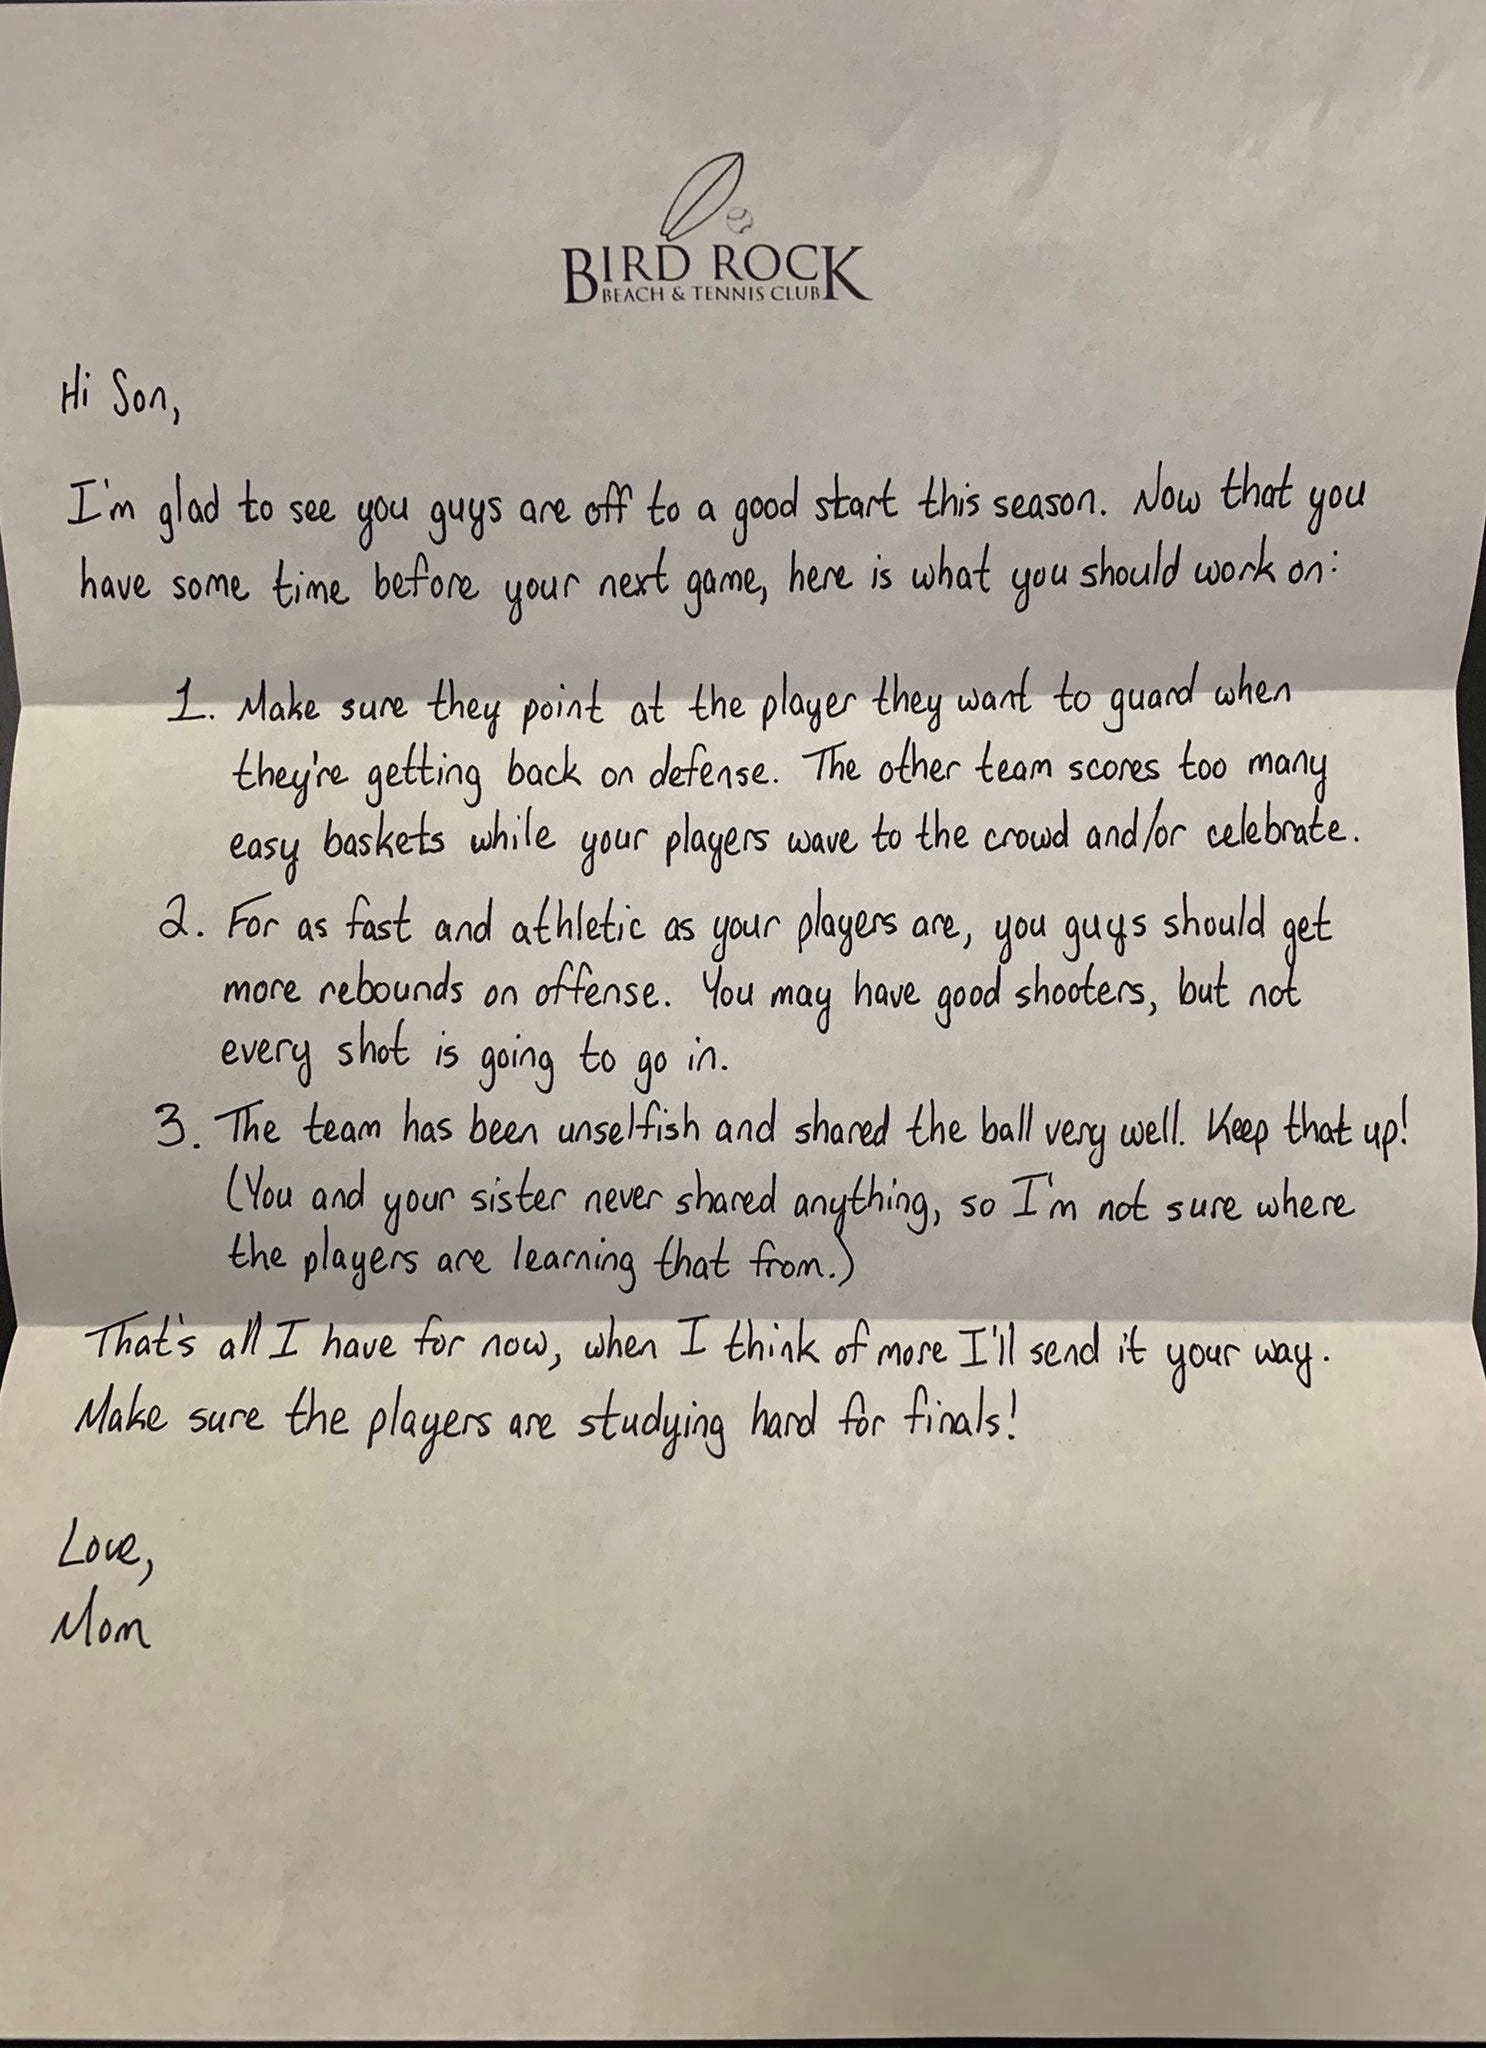 BIRD ROCK
BEACH & TENNIS CLUB
Hi Son,
I'm glad to see you guys are off to a good start this season. Now that you
have some time before your next game, here is what you should work on:
1. Make sure they point at the player they want to guard when
they're getting back on defense. The other team scores too many
easy baskets while your players wave to the crowd and/or celebrate.
2. For as fast and athletic as your players are, you guys should get
more rebounds on offense. You may have good shooters, but not
every shot is going to go in.
3. The team has been unselfish and shared the ball very well. Keep that up!
(You and your sister never shared anything, so I'm not sure where
the players are learning that from.)
That's all I have for now, when I think of more I'll send it your way.
Make sure the players are studying hard for finals!
Love,
Mom